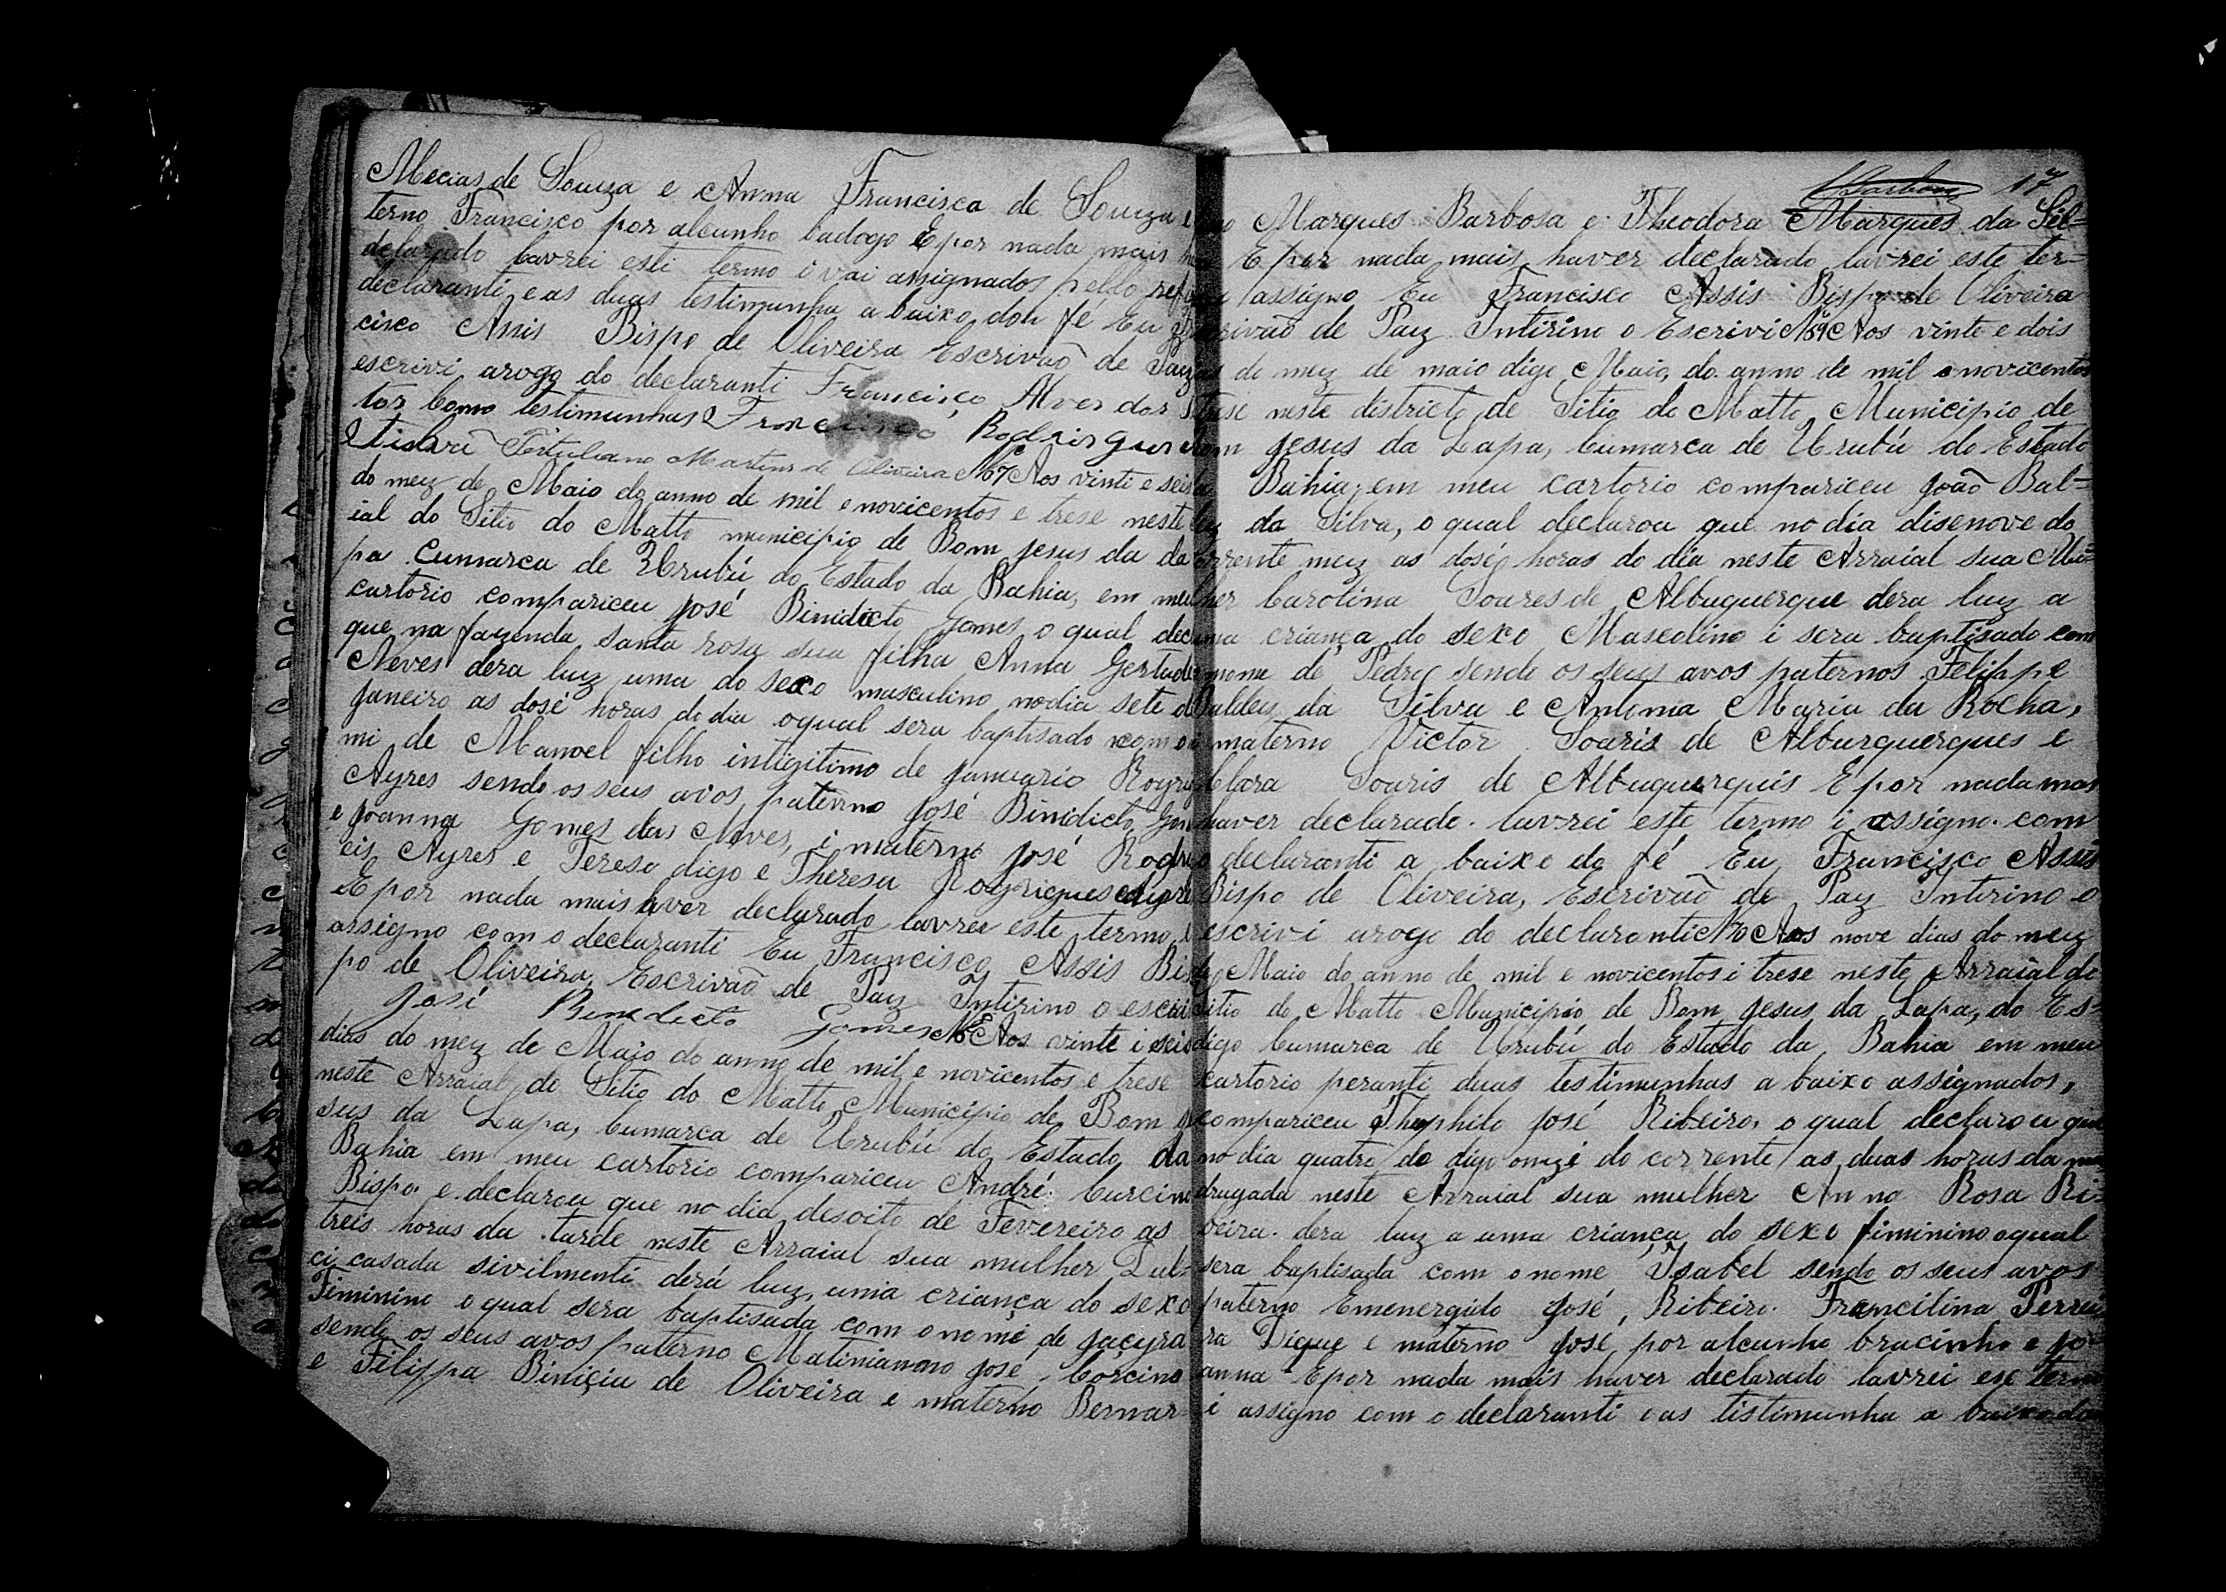 Mecias de Souza e Anna Francisca de Souza e
terno Francisco por alcunho badogo E por nada mais
declarado lavrei esti termo i vai assignados pello
declaranti e as duas testimunha a baixo, dou fé Eu
cisco Assis Bispo de Oliveira Escrivaõ de Paiz
escrivi arogo do declaranti Francisco Alves dos
tos Como testimunhas
Tertuliano Martins de Oliveira Nº 67 Aos vinti e seis
do mez de Maio do anno de mil e novicentos e trese neste
ial do Sitio do Matto municipio de Bom Jesus da La
pa Cumarca de Urubú do Estado da Bahia, em meu
cartorio compariceu José Binidicto Gomes o qual dec
que na fazenda santa rosa sua filha Anna Gertude
Neves dera luz uma do sexo masculino no dia sete d
Janeiro as dosé horas do dia o qual sera baptisado com o
mi de Manoel filho intigitimo de Januario
Ayres sendo os seus avos, paterno José Binidicto Gom
e Joanna Gomes das Neves, i materno José Rodri
cis Ayres e Teresa digo e Theresa
E por nada mais haver declarado lavrei este termo, i
assigno com o declaranti Eu Francisco Assis Bis
po de Oliveira, Escrivaõ de Paiz Intirino o escrivi
José Benedicto Gomes Nº 68 Aos vinte i seis
dias do mez de Maio do anno de mil e novicentos e trese
neste Arraial de Sitio do Matto, Municipio de Bom
sus da Lapa, Cumarca de Urubú do Estado da
Bahia em meu cartorio compariceu André Curcino
Bispo e declarou que no dia desoito de Fevereiro as
treis horas da tarde neste Arraial sua mulher Dul-
ci casada sivilmenti derá luz, uma criança do sexo
Fiminino o qual sera baptisada com o nomi de Jacyra
sendo os seus avos paterno José Corcino
e Filippa Biniciu de Oliveira e materno Bernar
17
no Marques Barbosa e Theodora Marques da Sil-
E por nada mais haver declarado lavrei este ter-
assigno Eu Francisco Assis Bispo de Oliveira
crivaõ de Paiz Intirino o Escrivi Nº 69 Aos vinte e dois
do mez de maio digo, Maio, do anno de mil e novicentos
trese neste districto de Sitio do Matto, Municipio de
om Jesus da Lapa, Cumarca de Urubú do Estado
Bahia, em meu cartorio compariceu Joaõ Bal-
da Silva, o qual declarou que no dia disenove do
orrente mez as dosé, horas do dia neste Arraial sua Mu-
lher Carolina Soares de Albuquerque dera luz a
uma criança do sexo Mascolino i sera baptisado com
nome de Pedro sendo os seus avos paternos Felippe
Baldeu da Silva e Antonia Maria da Rocha,
materno Victor Soaris de Alburquerques e
Clara Soaris de E por nada mas
haver declarado. lavrei este termo i assigno com
o declaranti a baixo do fé Eu, Francisco Assis
Bispo de Oliveira, Escrivaõ de Paiz Intirino o
escrivi arogo do declaranti Nº 70 Aos nove dias do mez
de Maio do anno de mil e novicentos i trese neste, Arraial de
Sitio do Matto Municipio de Bom Jesus da Lapa, do Es-
digo Cumarca de Urubú do Estado da Bahia em meu
cartorio peranti duas testimunhas a baixo assignados,
compariceu Thephilo José Ribeiro, o qual declarou que
no dia quatro do digo onze do corrente as duas horas da ma
drugada neste Arraial sua mulher Anna Rosa Ri-
beira. dera luz a uma criança do sexo fiminino o qual
sera baptisada com o nome Isabel sendo os seus avos
paterno Emenergido José, Ribeiro. Francilina Perrei
ra Dique e materno José por alcunho bracinho e Jo-
anna E por nada mais haver declarado lavrei ese termo
i assigno com o declaranti e as tistimunha a baixo dou